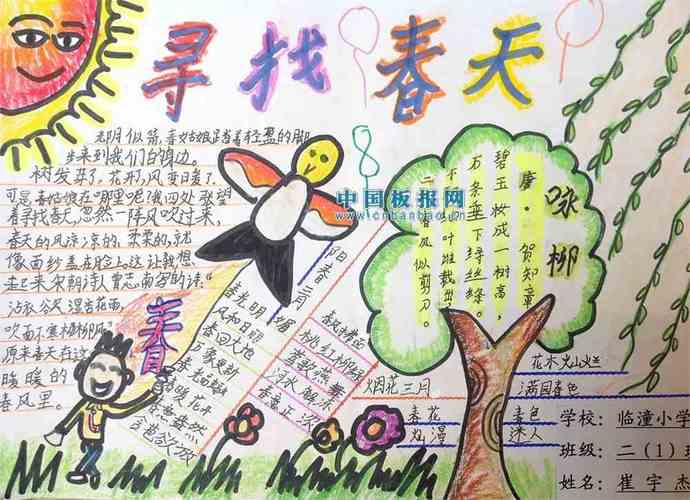 寻找春天
光阴似箭,春姑娘迈着轻盈的脚
步来到我们的身边。
树发芽了,花开,风变日暖了,
可是春姑娘在哪里呢?我四处张望
着寻找春天,忽然一阵风吹过来,
春天的风凉凉的,柔柔的,就
像面纱盖在脸上,这让我想
起了宋朝诗人曹志南写的诗:"
沾衣欲湿杏花雨,
吹面不寒杨柳风"
原来春天在这
暖暖的
春风里。
春
中国板报网
www.cnbanbao.cn
阳春三月
春光明媚
风和日丽
春回大地
万象更新
春暖花开
桃红柳绿
莺歌燕舞
冰水解冻
春意正浓
烟花三月
咏柳
唐·贺知章
碧玉妆成一树高,
万条垂下绿丝绦。
不 叶谁裁
二 春风似剪刀。
花木灿烂
满园春色
春花
灿漫
春色
迷人
学校:临潼小学
班级:二(1)班
姓名:崔宇杰